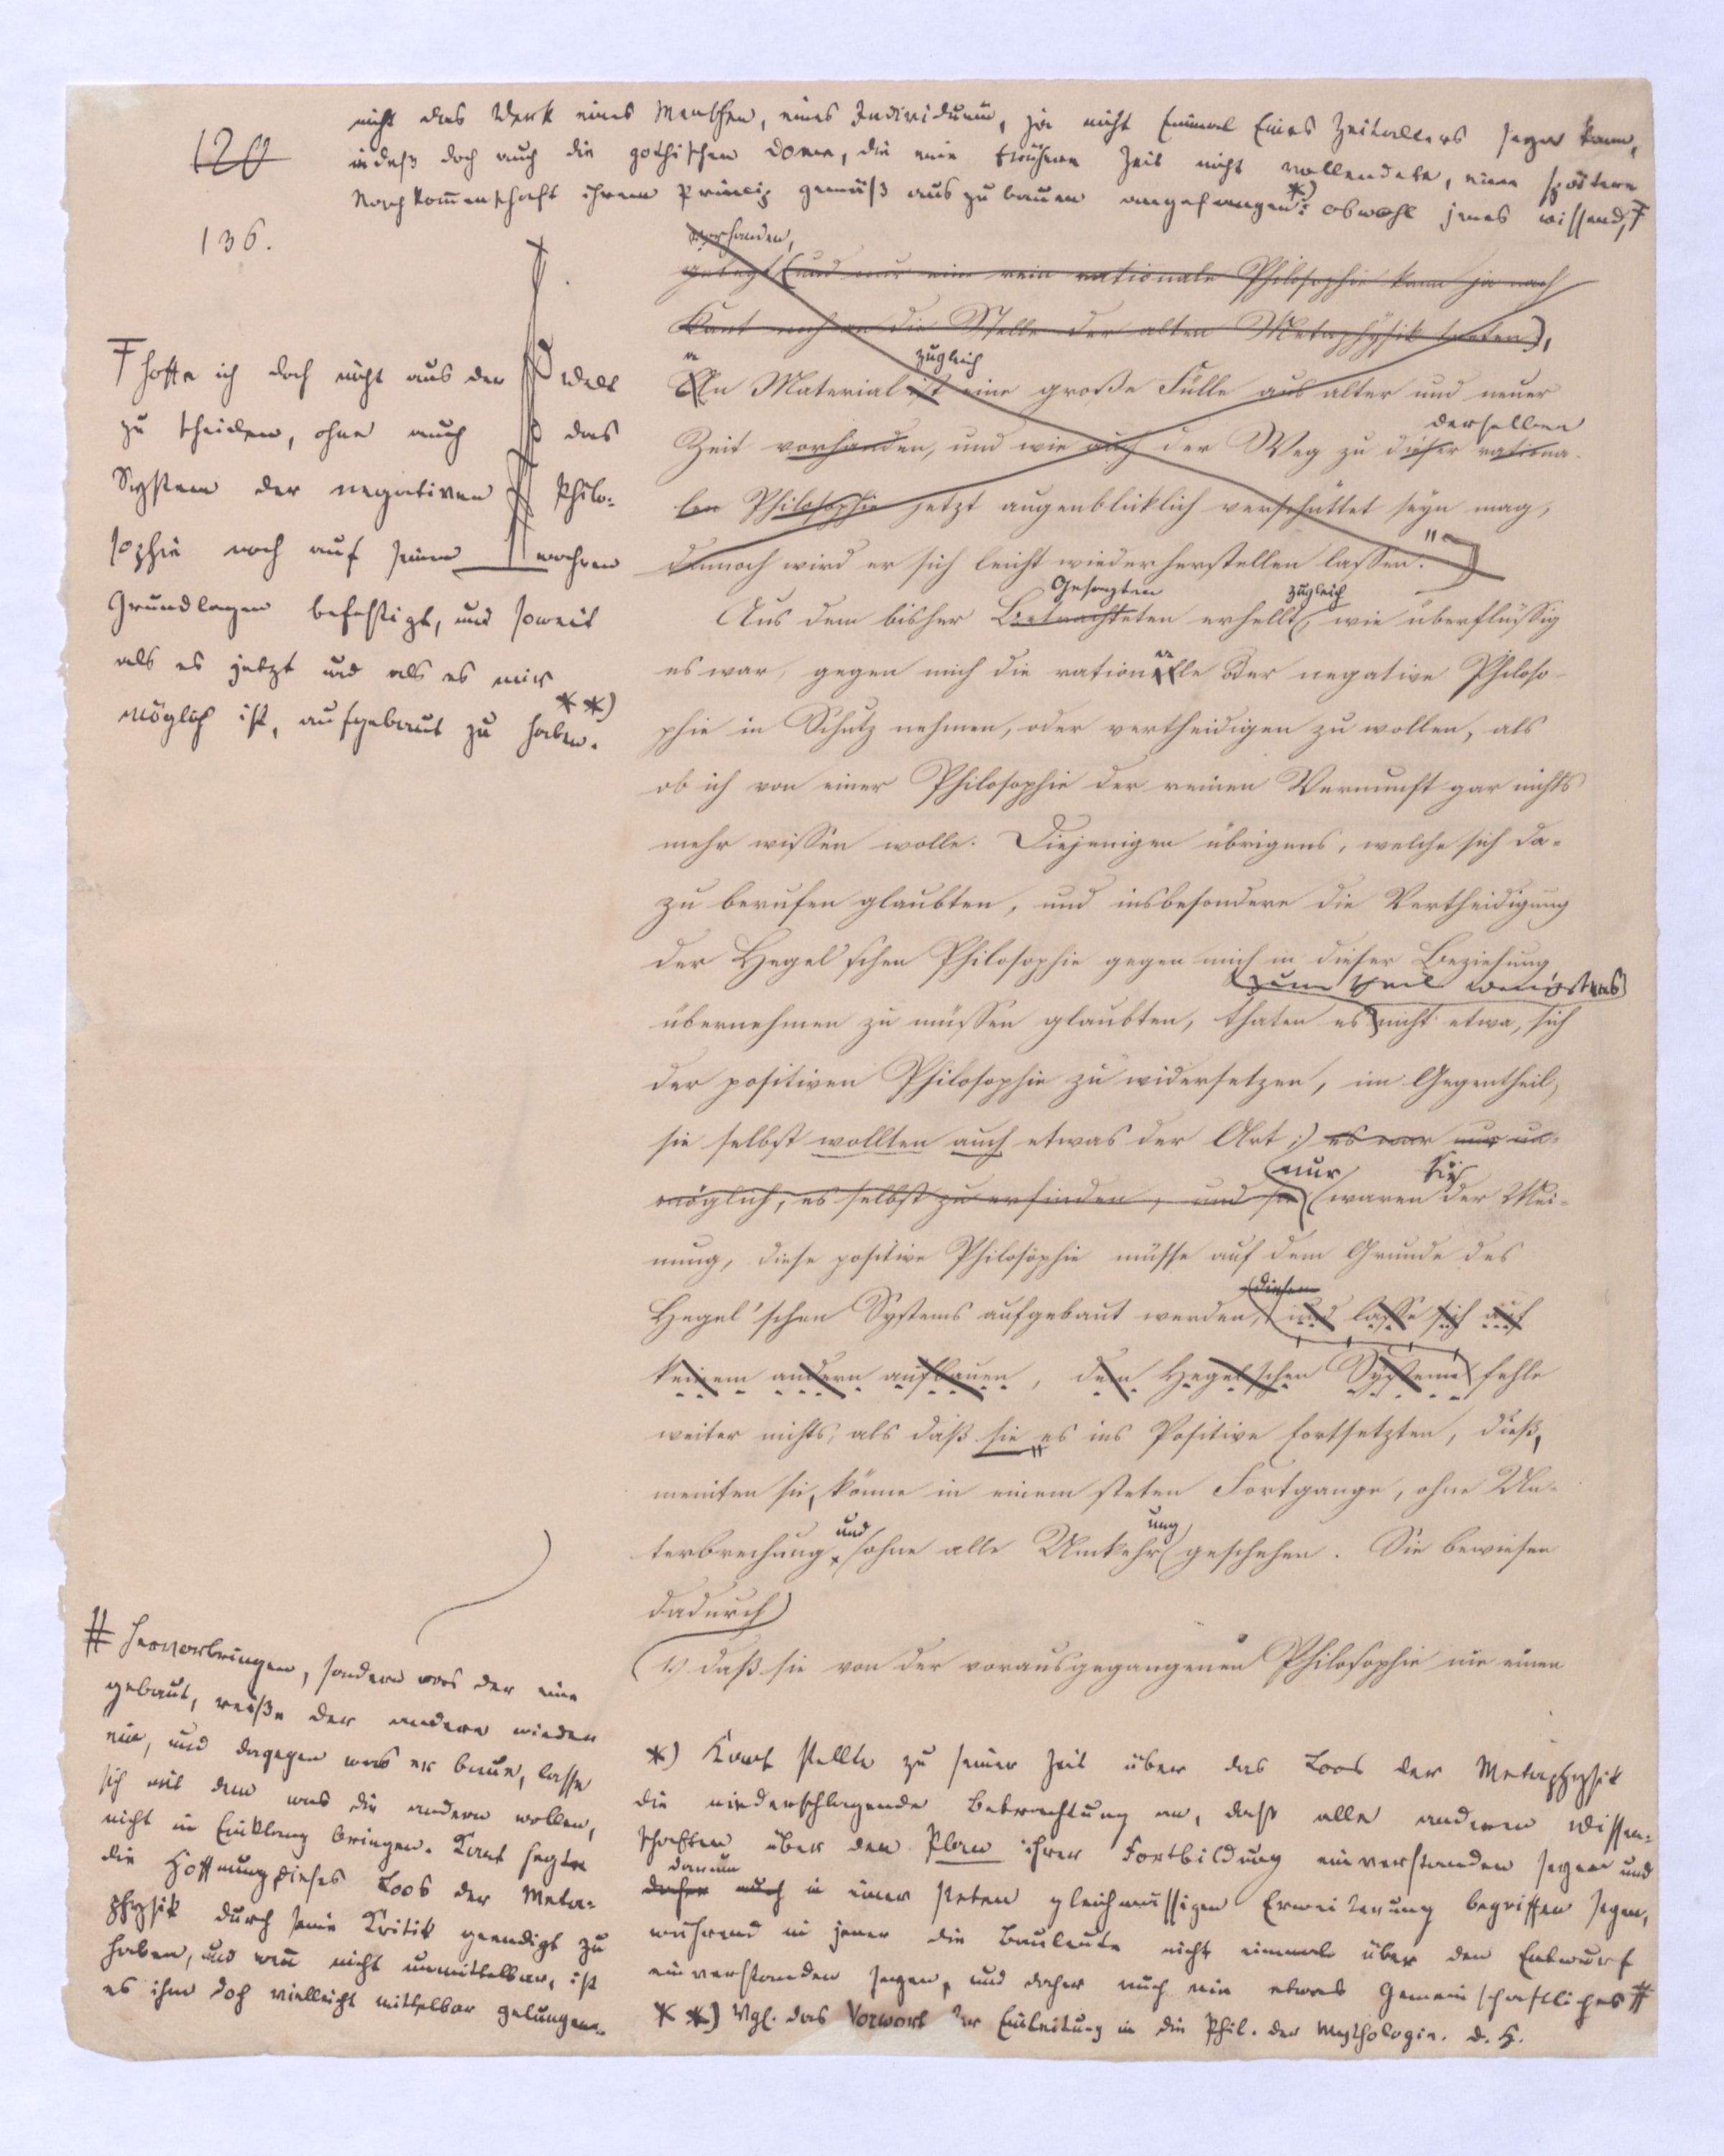 120
136.
nicht das Werk eines Menschen, eines Individuum, ja nicht Einmal Eines Zeitalters seyn kann,
indeß doch auch die gothischen Dome, die eine frühere Zeit nicht vollendete, eine spätere
Nachkommenschaft ihrem Princip gemäß auszubauen angefangen: *) obwohl jenes wissend, Ŧ
Ŧ hoffe ich doch nicht aus der Welt
zu scheiden, ohne auch das
System der negativen Philo-
sophie noch auf seinen wahren
Grundlagen befestigt, und soweit
als es jetzt und als es mir
möglich ist, aufgebaut zu haben. **)
vorhanden,
gelegt (und nur eine rein rationale Philosophie kann ja nach
Kant noch an die Stelle der alten Metaphysik treten),
zugleich
An Material ist eine große Fülle aus alter und neuer
derselben
Zeit vorhanden, und wie auch der Weg zu dieser rationa-
len Philosophie jetzt augenblicklich verschüttet seyn mag,
dennoch wird er sich leicht wiederherstellen lassen."
Gesagten zugleich
Aus dem bisher Betrachteten erhellt, wie überflüssig
es war, gegen mich die rationelle oder negative Philoso-
phie in Schutz nehmen, oder vertheidigen zu wollen, als
ob ich von einer Philosophie der reinen Vernunft gar nichts
mehr wissen wolle. Diejenigen übrigens, welche sich da-
zu berufen glaubten, und insbesondere die Vertheidigung
der Hegel'schen Philosophie gegen mich in dieser Beziehung
zum Theil wenigstens
übernehmen zu müssen glaubten, thaten es nicht etwa, sich
der positiven Philosophie zu widersetzen, im Gegentheil,
sie selbst wollten auch etwas der Art; es war nur un-
nur sie
möglich, es selbst zu erfinden, und sie waren der Mei-
nung, diese positive Philosophie müsse auf dem Grunde des
diesem
Hegel'schen Systems aufgebaut werden, und lasse sich auf
keinem andern aufbauen, dem Hegelschen Systeme fehle
weiter nichts, als daß sie es ins Positive fortsetzten, dieß,
meinten sie, könne in einem steten Fortgange, ohne Un-
und ung
terbrechung, ohne alle Umkehr geschehen. Sie bewiesen
dadurch
1) daß sie von der vorausgegangenen Philosophie nie einen
*) Kant stellte zu seiner Zeit über das Loos der Metaphysik
die niederschlagende Betrachtung an, daß alle anderen Wissen-
schaften über den Plan ihrer Fortbildung einverstanden seyen und
darum
daher auch in einer steten gleichmässigen Erweiterung begriffen seyen,
während in jener die Bauleute nicht einmal über den Entwurf
einverstanden seyen, und daher auch nie etwas Gemeinschaftliches #
# hervorbringen, sondern was der eine
gebaut, reiße der andere wieder
ein, und dagegen was er baue, lasse
sich mit dem was die andern wollen,
nicht in Einklang bringen. Kant hegte
die Hoffnung dieses Loos der Meta-
physik durch seine Kritik geendigt zu
haben, und wenn nicht unmittelbar, ist
es ihm doch vielleicht mittelbar gelungen.
**) Vgl. das Vorwort der Einleitung in die Phil. der Mythologie. d. H.